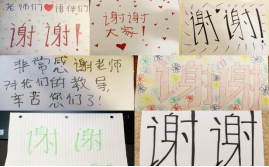 老师们❤陪伴们
谢谢!
谢谢
大家!
谢谢!
非常感谢老师
对我们的教导,
辛苦您们了!
谢谢
谢谢
谢谢!